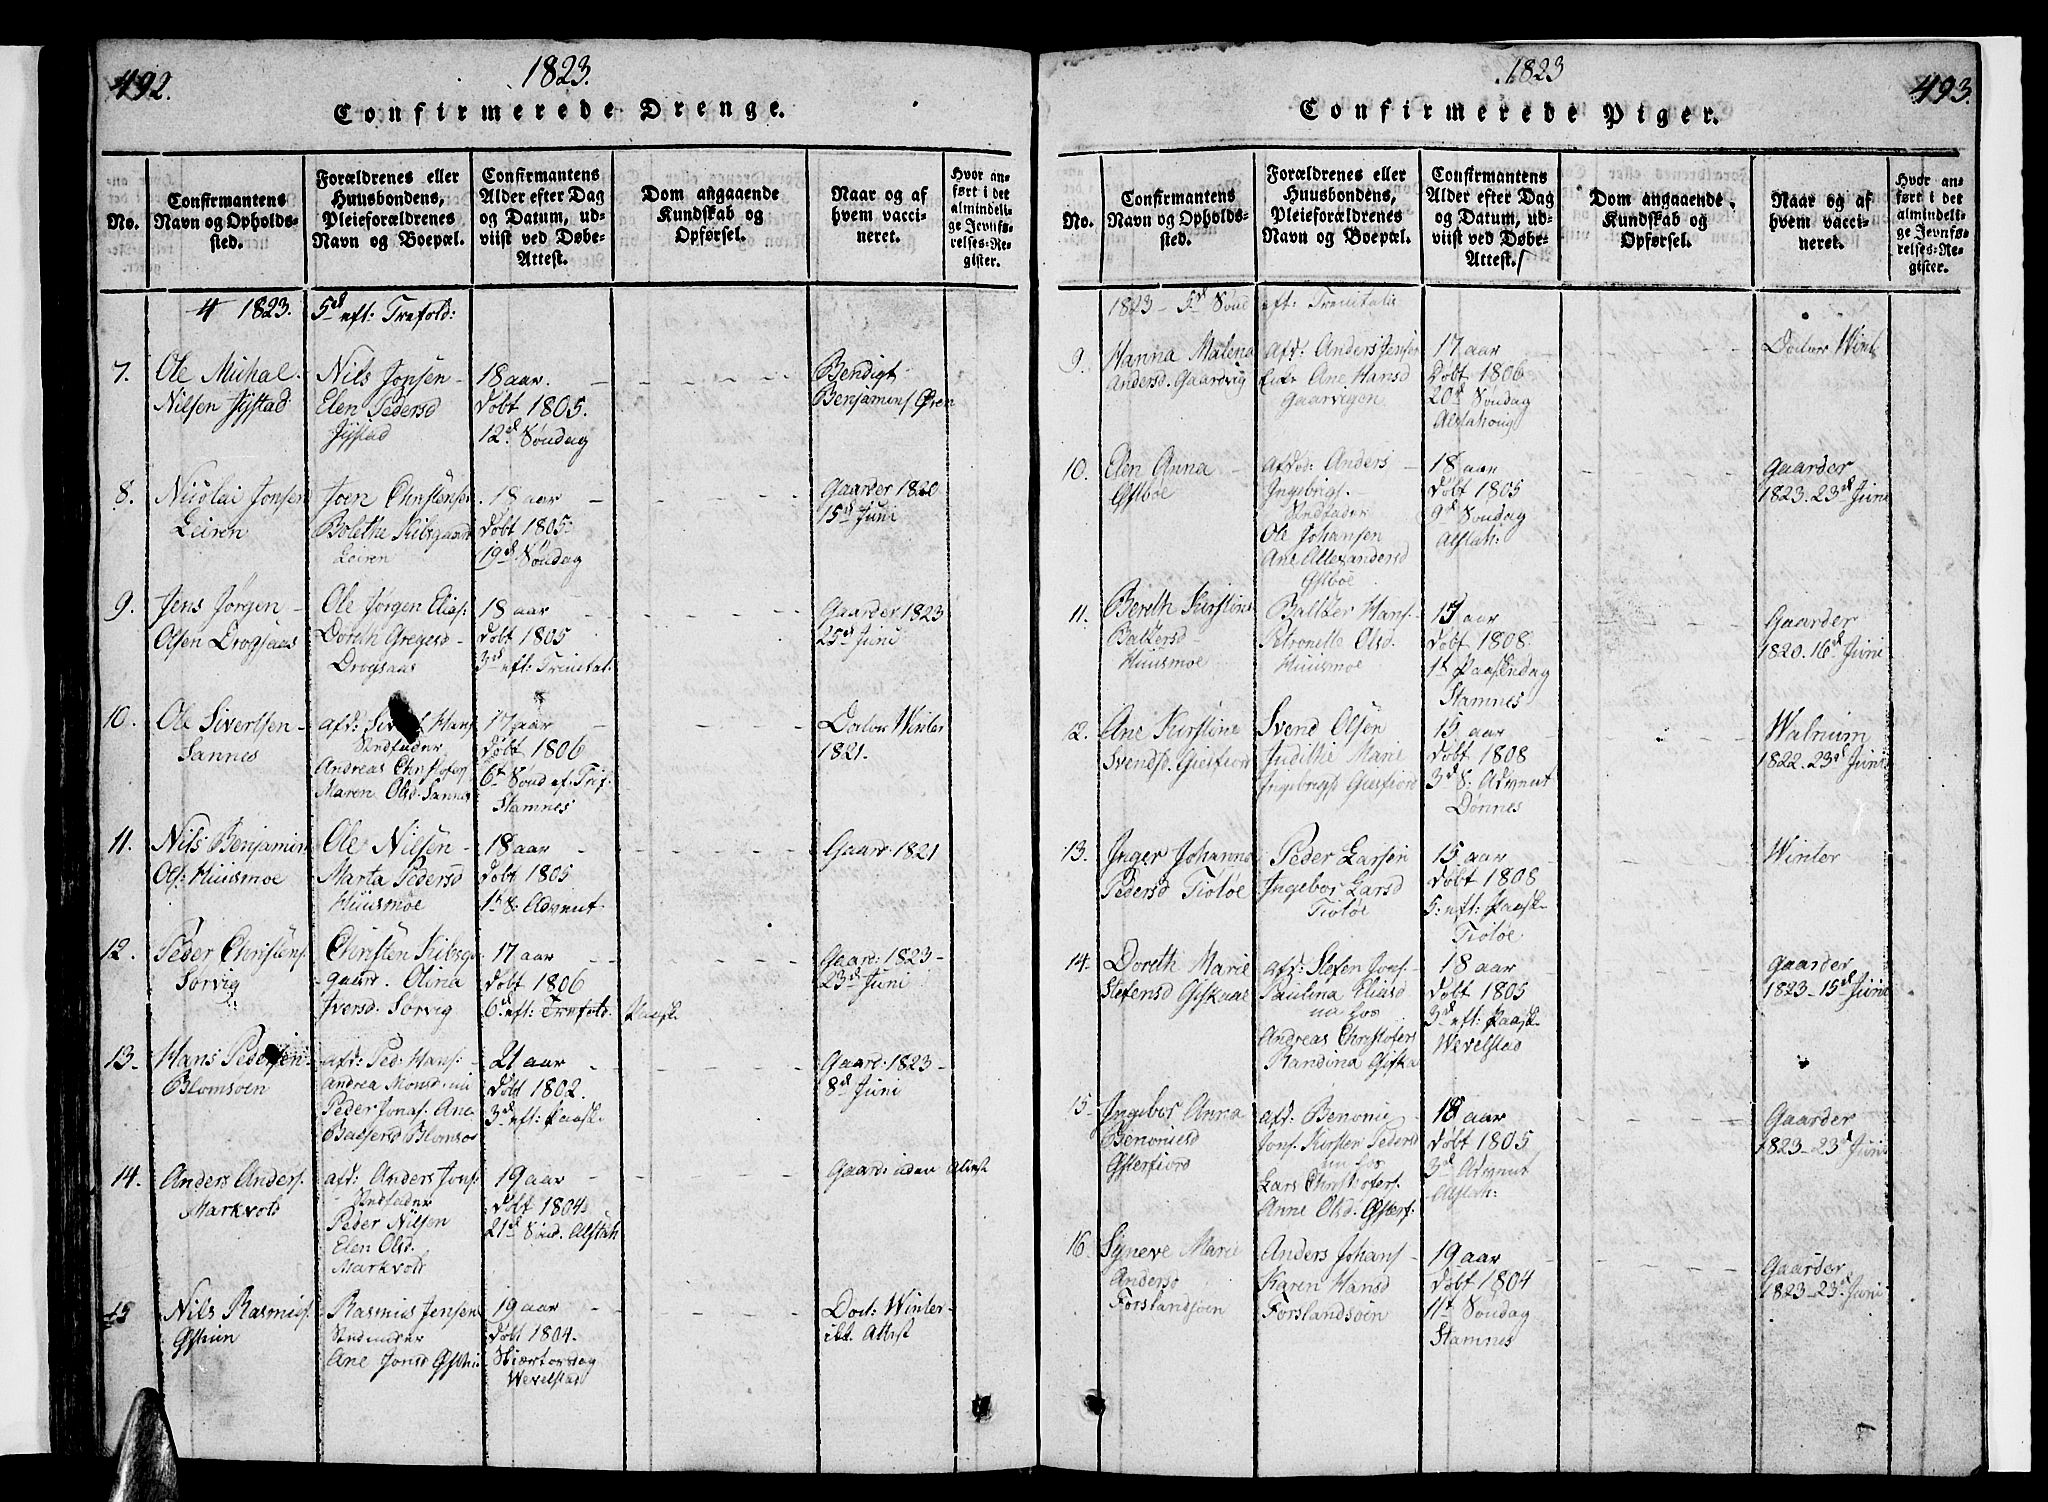 492.
1823.
Confirmerede Drenge.
No.
Confirmantens
Navn og Opholds-
sted.
Forældrenes eller
Huusbondens,
Pleieforældrenes
Navn og Boepæl.
Confirmantens
Alder efter Dag
og Datum, ud-
viist ved Døbe-
Attest.
Dom angaaende
Kundskab og
Opførsel.
Naar og af
hvem vacci-
neret.
Hvor an-
ført i det
almindeli-
ge Jevnfø-
relses-Re-
gister.
4 1823. 5d eft: Trefold:
7.
Ole Michal
Nilsen
Nils Jonsen
Elen Pedersd
18 aar.
døbt 1805.
12d Søndag
Bendigt
Benjamins Øren
8.
Nicolai Jonsen
Leiren
Joen Christensen
Bolethe Kibsgaard
Leiren
18 aar
døbt 1805.
19d Søndag
Gaarder 1820
15d Juni
9.
Jens Jørgen
Olsen Drogsaas
Ole Jørgen Elias:
Doreth Gregersd
Drogsaas
18 aar
døbt 1805
3d eft: Trinitat:
Gaarder 1823
25d Juni
10.
Ole Sivertsen
Sannes
afd: Sivert Hans
Stedfader
Andreas Christofers
Maren Olsd. Sannes
17 aar
døbt 1806
6t Sønd ef. Trif:
Stamnes
Doctor Winter
1821.
11.
Nils Benjamin
Ols: Huusmoe
Ole Nilsen
Marta Pedersd
Huusmoe
18 aar
døbt 1805
1t S: Advent
Gaard: 1821
12.
Peder Christens:
Sørvig
Christen Kibsgo
gaard. Olina
Iversd. Sørvig
17 aar
døbt 1806
6d eft: Trefold.
Paaske
Gaard: 1823
23d Juni
13.
Hans Pedersen
Blomsøen
afd: Ped: Hans:
Andrea Monsd nu
Peder Jonas: Ane
Baltsersd Blomsøe
21 aar
døbt 1802.
3d eft: Paaske
Gaard: 1823
8d Juni
14.
Anders Anders:
Markvold
afd: Anders Jons:
Stedfader
Peder Nilsen
Elen Olsd.
Markvold
19 aar
døbt 1804
21d Sønd. Alstah
Gaard: uden Attest
15
Nils Rasmus:
Rasmus Jensen
Ane Jonsd
19 aar
døbt 1804.
Skiærtorsdag
Wevelstad
Doct: Winter
Attest
1823
493.
Confirmerede Piger.
No.
Confirmantens
Navn og Opholds-
sted.
Forældrenes eller
Huusbondens,
Pleieforældrenes
Navn og Boepæl.
Confirmantens
Alder efter Dag
og Datum, ud-
viist ved Døbe-
Attest.
Dom angaaende
Kundskab og
Opførsel.
Naar og af
hvem vacci-
neret.
Hvor an-
ført i det
almindeli-
ge Jevnfø-
relses-Re-
gister.
1823 - 5d Sønd eft: Trenitatis
9.
Hanna Malena
Andersd. Gaardvig
afd: Anders Jensen
Enke Ane Hansd
Gaarvigen
17 aar
døbt 1806
20d Søndag
Alstahoug
Doctor Wint
10.
Elen Anna
Østbøe
afdød: Anders
Ingebrigs.
Stedfader
Ole Johansen
Ane Allexandersd
Østbøe
18 aar
døbt 1805
9d Søndag
Alstah:
Gaarder
1823. 23d Juni
11.
Bereth Kirstine
Baltzersd
Huusmoe
Baltzer Hans:
Petronelle Olsd.
Huusmoe
15 aar
døbt 1808.
1t Paaskedag
Stamnes
Gaarder
1820. 16d Juni
12.
Ane Kirstine
Svendsd. Gieifiord
Svend Olsen
Judithe Marie
Ingebrigts Gieifiord
15 aar
døbt 1808
3d S: Advent
Dønnes
Walnum
1822. 23d Juni
13.
Inger Johanna
Pedersd Tiøtøe
Peder Larsen
Ingebor Larsd
Tiøtøe
15 aar
døbt 1808
5: eft: Paaske
Tiøtøe
Winter
14.
Doreth Marie
Stefensd
afd: Stefen Jons:
Paulina Eliasd
nu hos
Andreas Christofers
Randina
18 aar
døbt 1805
3d eft: Paaske
Wevelstad
Gaarder
1823 - 15d Juni
15.
Ingebor Anna
Benoniesd
Østerfiord
afd: Benonie
Jons. Kirsten Pedersd
nu hos
Lars Christofers.
Anne Olsd. Østerf:
18 aar
døbt 1805
3d Advent
Alstah:
Gaarder
1823 - 23d Juni
16.
Syneve Marie
Andersd
Forslandsøen
Anders Johans
Karen Hansd
Forslandsøen
19 aar
døbt 1804
11t Søndag
Stamnes
Gaarder
1823 - 23d Juni